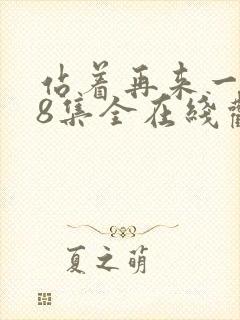 占着再来一
8集全在线
夏之萌